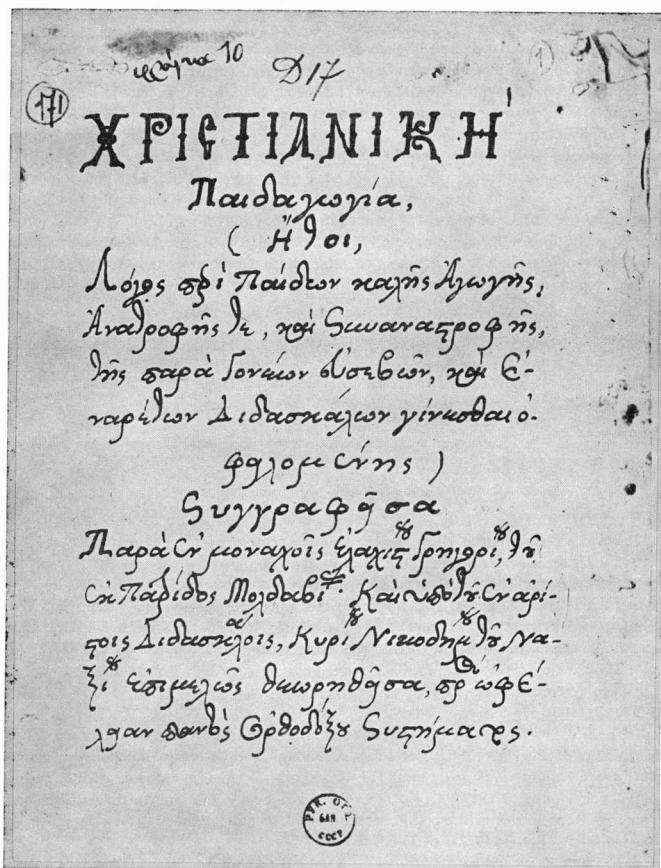 10 Д 17 1
171
ΧΡΙСΤΙΑΝΙΚΗ´
Παιδαγωγία,
( Ἤτοι,
Λόγος πρὶ Παίδων καλῆς Ἀγωγῆς,
Ἀνατροφῆς τε, καὶ Συναναστροφῆς,
τῆς παρὰ Γονέων εὐσεβῶν, καὶ Ἐ-
ναρέτων Διδασκάλων γίνεσθαι ὀ-
φειλομένης )
Συγγραφεῖσα
Παρὰ ἐν μοναχοῖς ἐλαχίστου Γρηγορίου, τοῦ
ἐκ Πατρίδος Μολδαβίας. Καὶ ὑπὸ τοῦ ἐν ἀρί-
στοις Διδασκάλοις, Κυρίου Νικοδήμου τοῦ Να-
ξίου ἐπιμελῶς θεωρηθεῖσα, πρὸς ὠφέ-
λειαν παντὸς Ὀρθοδόξου Συστήματος.
РУК. ОТД.
БАН
СССР